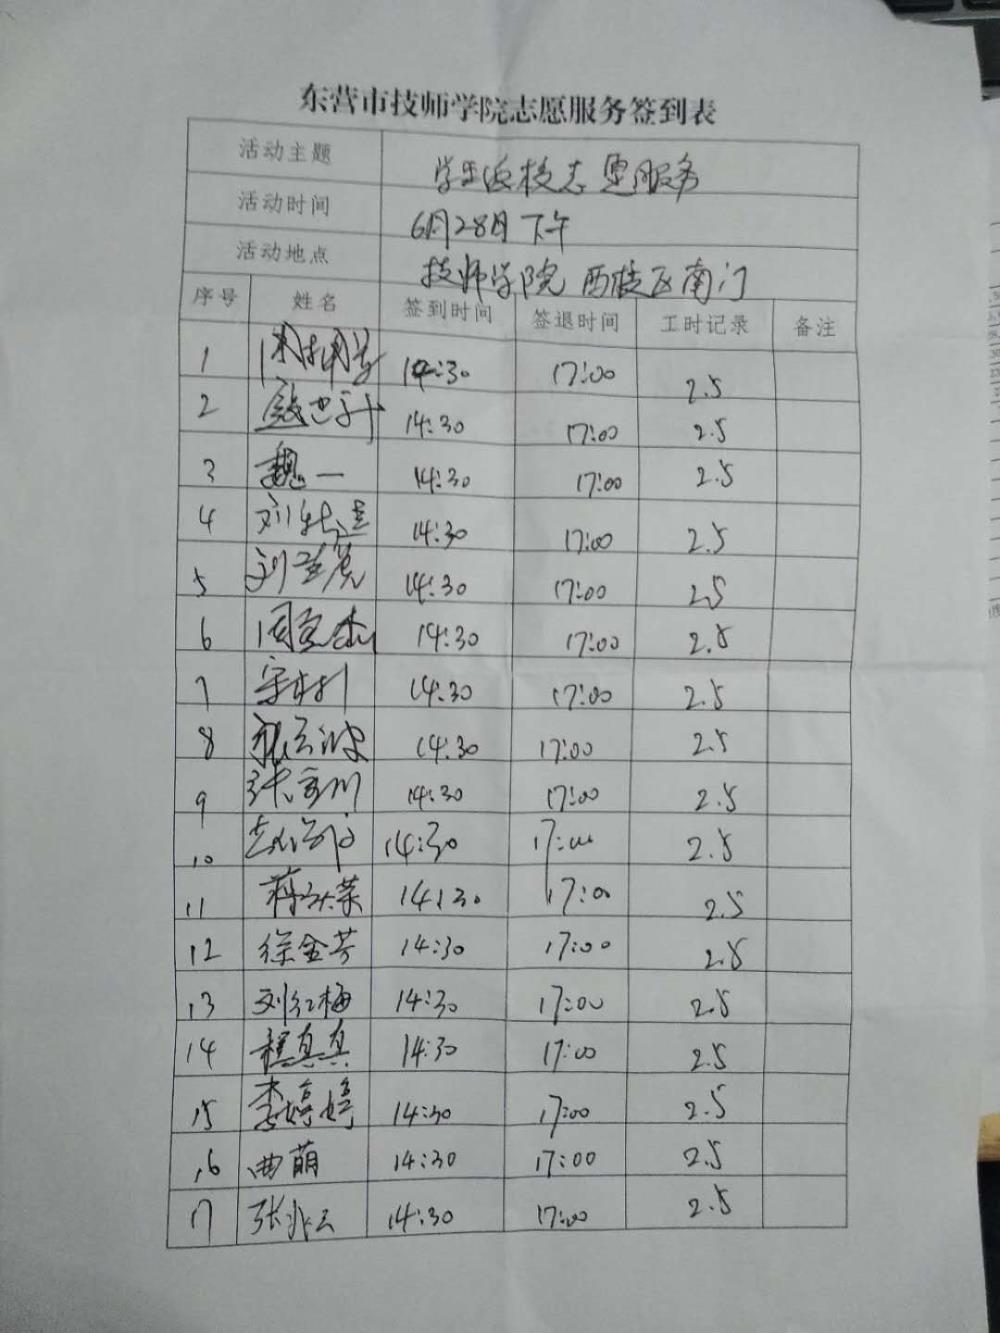 东营市技师学院志愿服务签到表
活动主题 学生返校志愿服务
活动时间 6月28日下午
活动地点 技师学院 西校区南门
序号 姓名 签到时间 签退时间 工时记录 备注
1 14:30 17:00 2.5
2 14:30 17:00 2.5
3 魏一 14:30 17:00 2.5
4 刘 14:30 17:00 2.5
5 刘 14:30 17:00 25
6 周 杰 14:30 17:00 2.5
7 14:30 17:00 2.5
8 14:30 17:00 2.5
9 张 川 14:30 17:00 2.5
10 14:30 17:00 2.5
11 蒋 荣 14:30 17:00 2.5
12 徐金芳 14:30 17:00 2.5
13 刘红梅 14:30 17:00 2.5
14 程真真 14:30 17:00 2.5
15 李婷婷 14:30 17:00 2.5
16 曲萌 14:30 17:00 2.5
17 张兆云 14:30 17:00 2.5